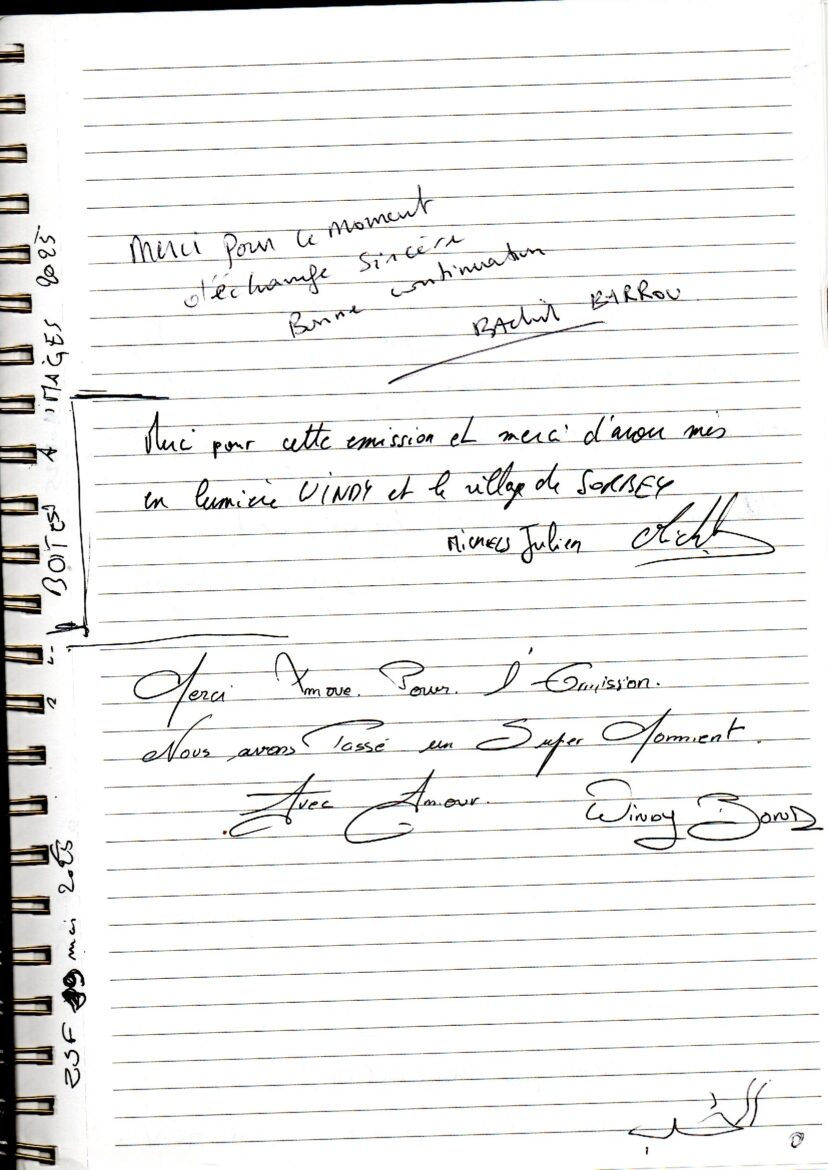 Merci pour ce moment
d'échange sincère
Bonne continuation
BAchir BARROU
Merci pour cette emission et merci d'avoir mis
en lumière WINDY et le village de SORBEY
MICHELS Julien
Merci Pour l'Emission.
Nous avons Passé un Super Momment.
Avec Amour. Windy Bonds
BOITES A IMAGES 2025
ZSF mai 2025